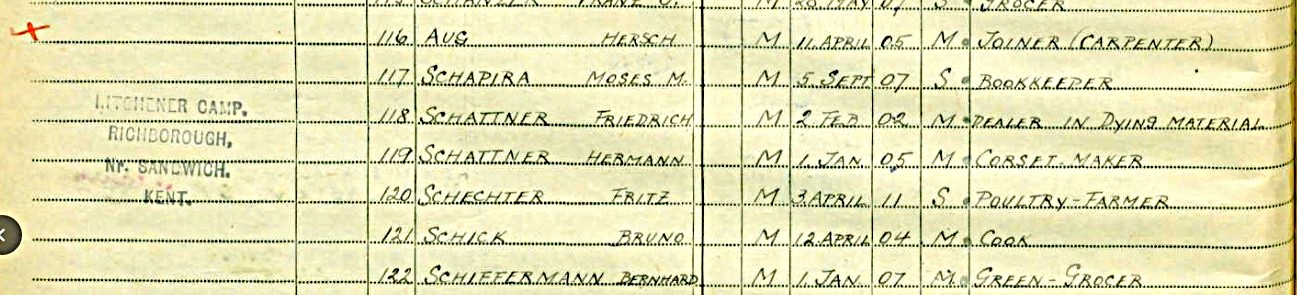 GROCER
116 AUG HERSCH M 11. APRIL 05 M JOINER (CARPENTER)
117 SCHAPIRA MOSES M. M 5 SEPT 07 S BOOKKEEPER
118 SCHATTNER FRIEDRICH M 2 FEB 02 M DEALER IN DYING MATERIAL
119 SCHATTNER HERMANN M 1. JAN 05 M CORSET-MAKER
120 SCHECHTER FRITZ M 3 APRIL 11 S POULTRY-FARMER
121 SCHICK BRUNO M 12 APRIL 04 M COOK
122 SCHIEFERMANN BERNHARD M 1. JAN. 07 M. GREEN-GROCER
KITCHENER CAMP.
RICHBOROUGH,
Nr. SANDWICH.
KENT.